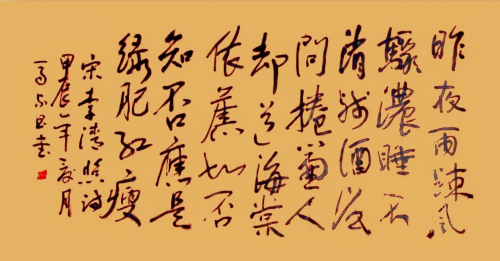 昨夜雨踈风
骤濃睡不
消残酒试
问捲簾人
却道海棠
依舊知否
知否應是
绿肥红瘦
宋李清照词
甲辰年月
书